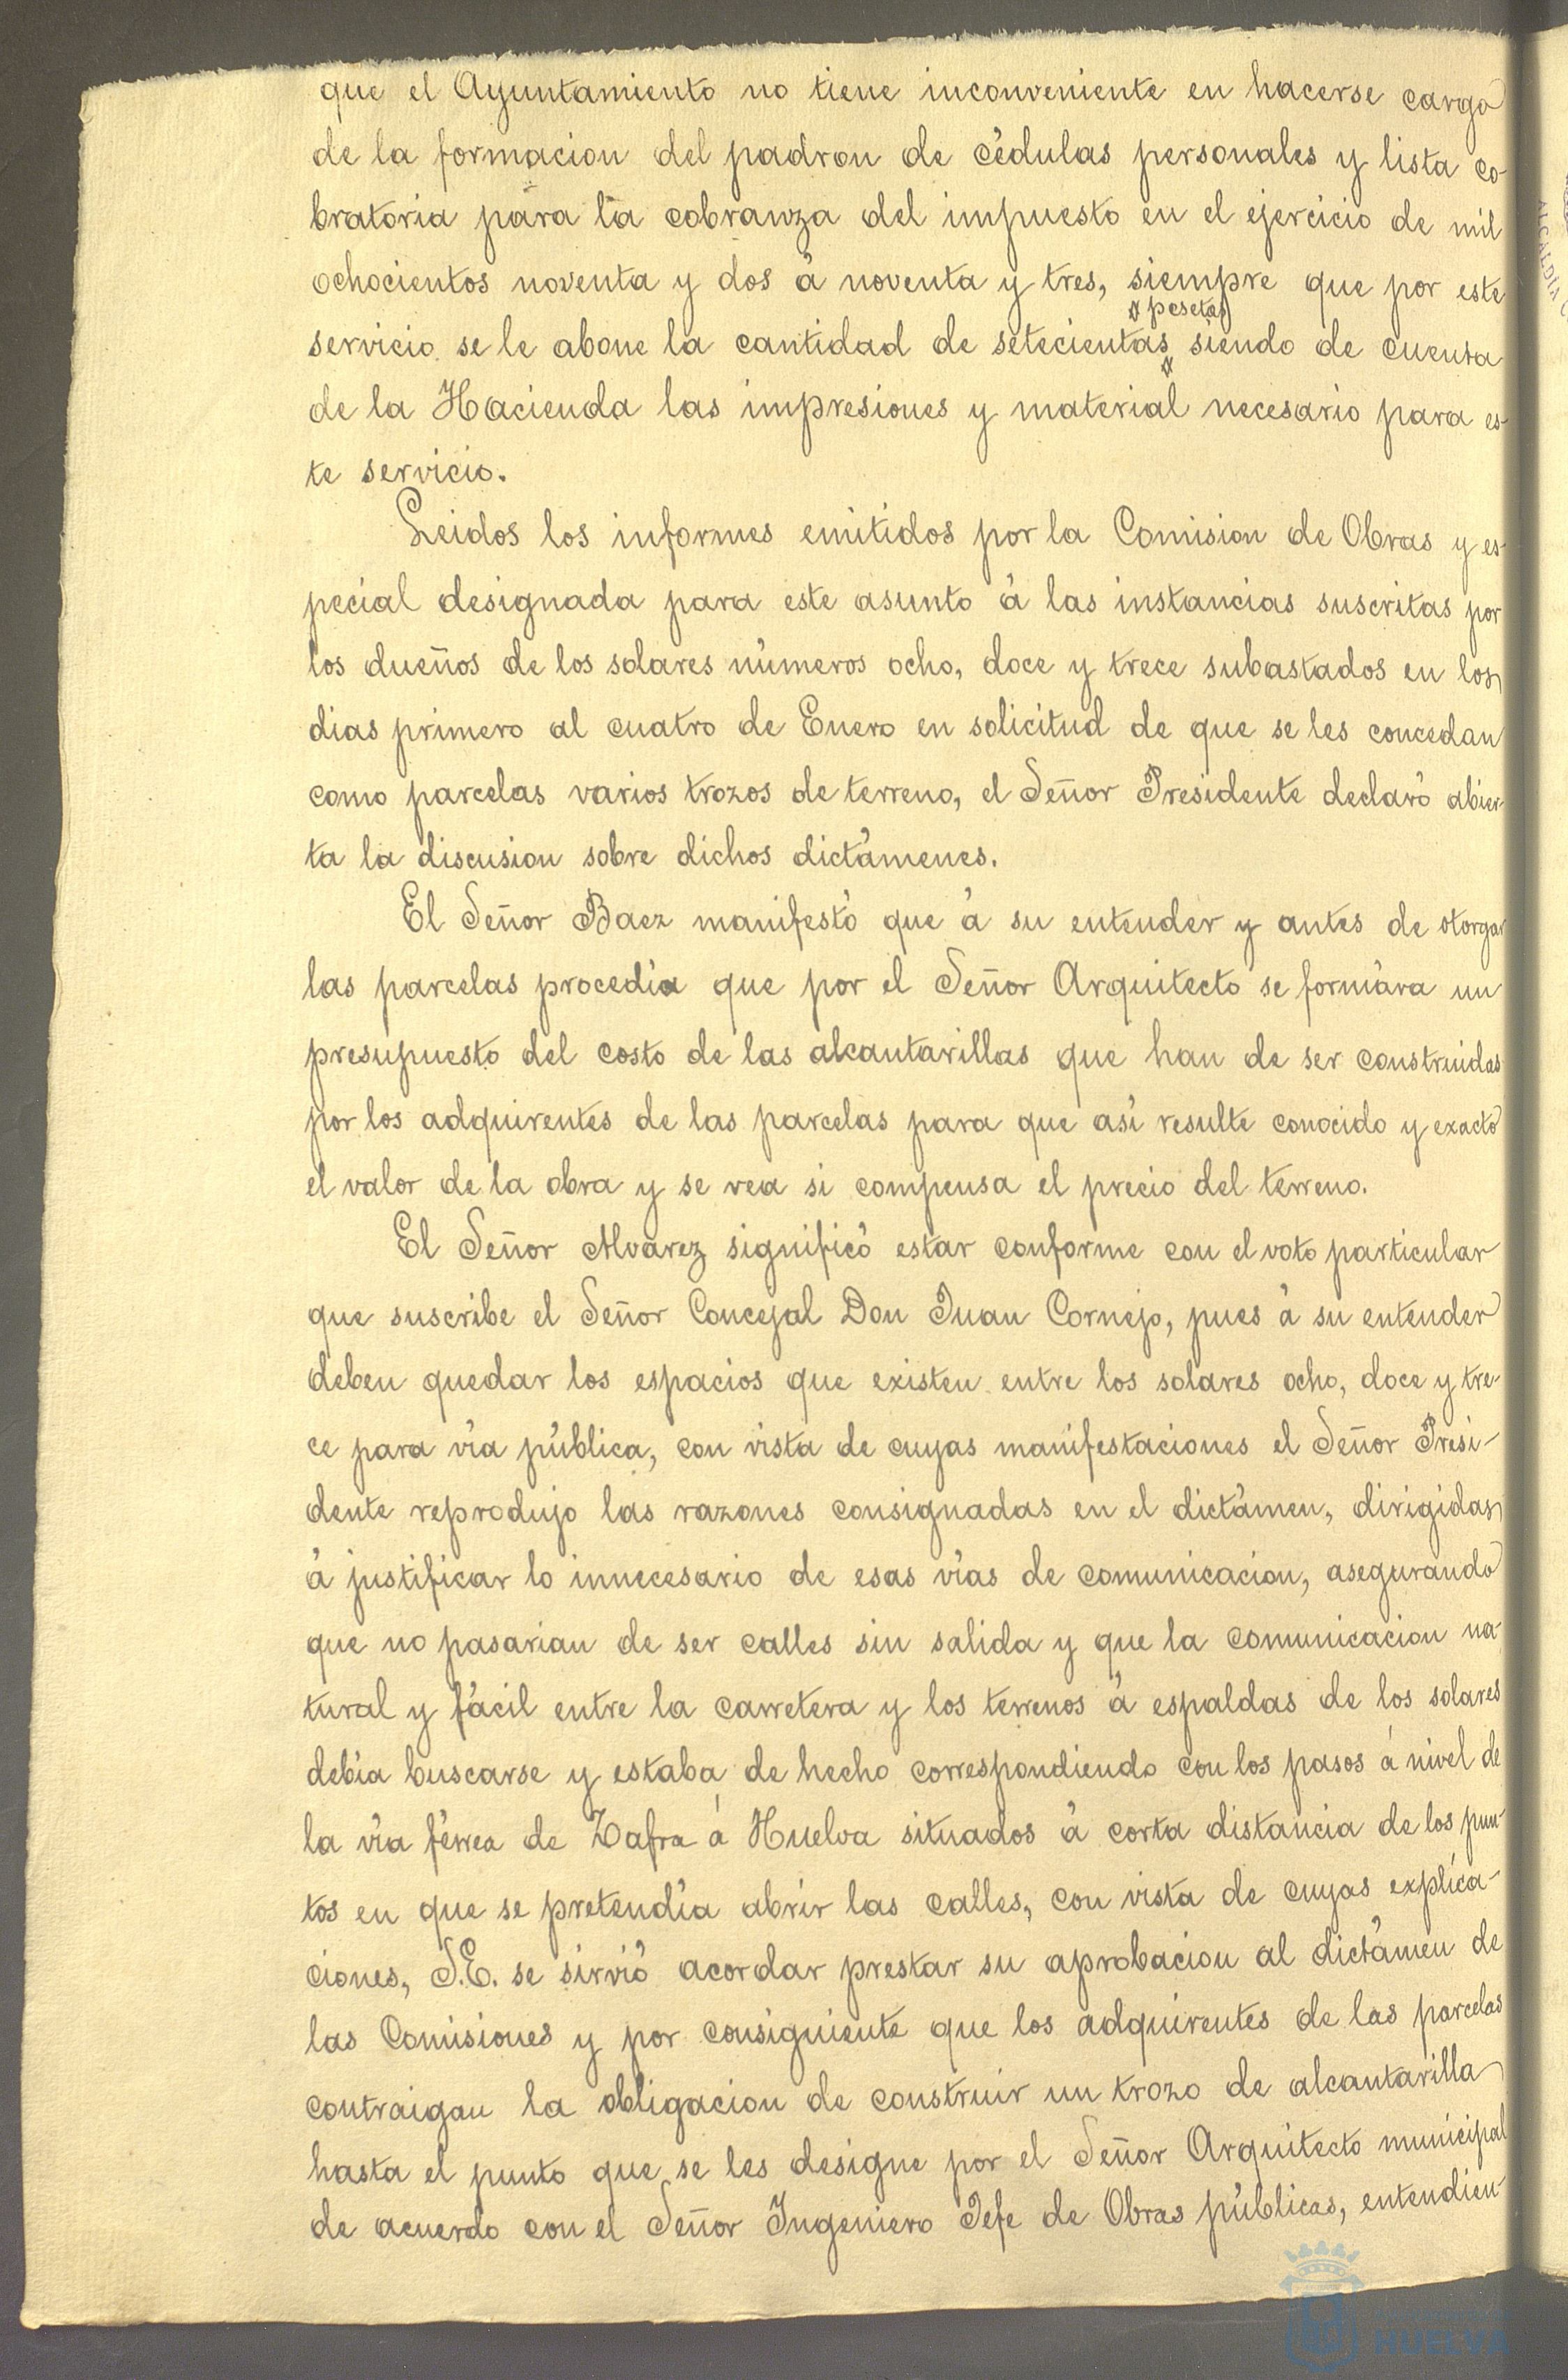 que el Ayuntamiento no tiene inconveniente en hacerse cargo
de la formacion del padron de cédulas personales y lista co-
bratoria para la cobranza del impuesto en el ejercicio de mil
ochocientos noventa y dos á noventa y tres, siempre que por este
pesetas
servicio se le abone la cantidad de setecientas siendo de cuenta
de la Hacienda las impresiones y material necesario para es-
te servicio.
Leidos los informes emitidos por la Comision de Obras y es-
pecial designada para este asunto á las instancias suscritas por
los dueños de los solares números ocho, doce y trece subastados en los
dias primero al cuatro de Enero en solicitud de que se les concedan
como parcelas varios trozos de terreno, el Señor Presidente declaró abier-
ta la discusion sobre dichos dictámenes.
El Señor Baez manifestó que á su entender y antes de otorgar
las parcelas procedía que por el Señor Arquitecto se formára un
presupuesto del costo de las alcantarillas que han de ser construidas
por los adquirentes de las parcelas para que así resulte conocido y exacto
el valor de la obra y se vea si compensa el precio del terreno.
El Señor Alvarez significó estar conforme con el voto particular
que suscribe el Señor Concejal Don Juan Cornejo, pues á su entender
deben quedar los espacios que existen entre los solares ocho, doce y tre-
ce para vía pública, con vista de cuyas manifestaciones el Señor Presi-
dente reprodujo las razones consignadas en el dictámen, dirigidas
á justificar lo innecesario de esas vías de comunicacion, asegurando
que no pasarian de ser calles sin salida y que la comunicacion na-
tural y fácil entre la carretera y los terrenos á espaldas de los solares
debía buscarse y estaba de hecho correspondiendo con los pasos á nivel de
la vía férrea de Zafra á Huelva situados á corta distancia de los pun-
tos en que se pretendía abrir las calles, con vista de cuyas explica-
ciones, S.E. se sirvió acordar prestar su aprobacion al dictámen de
las Comisiones y por consiguiente que los adquirentes de las parcelas
contraigan la obligacion de construir un trozo de alcantarilla
hasta el punto que se les designe por el Señor Arquitecto municipal
de acuerdo con el Señor Ingeniero Jefe de Obras públicas, entendien-
HUELVA